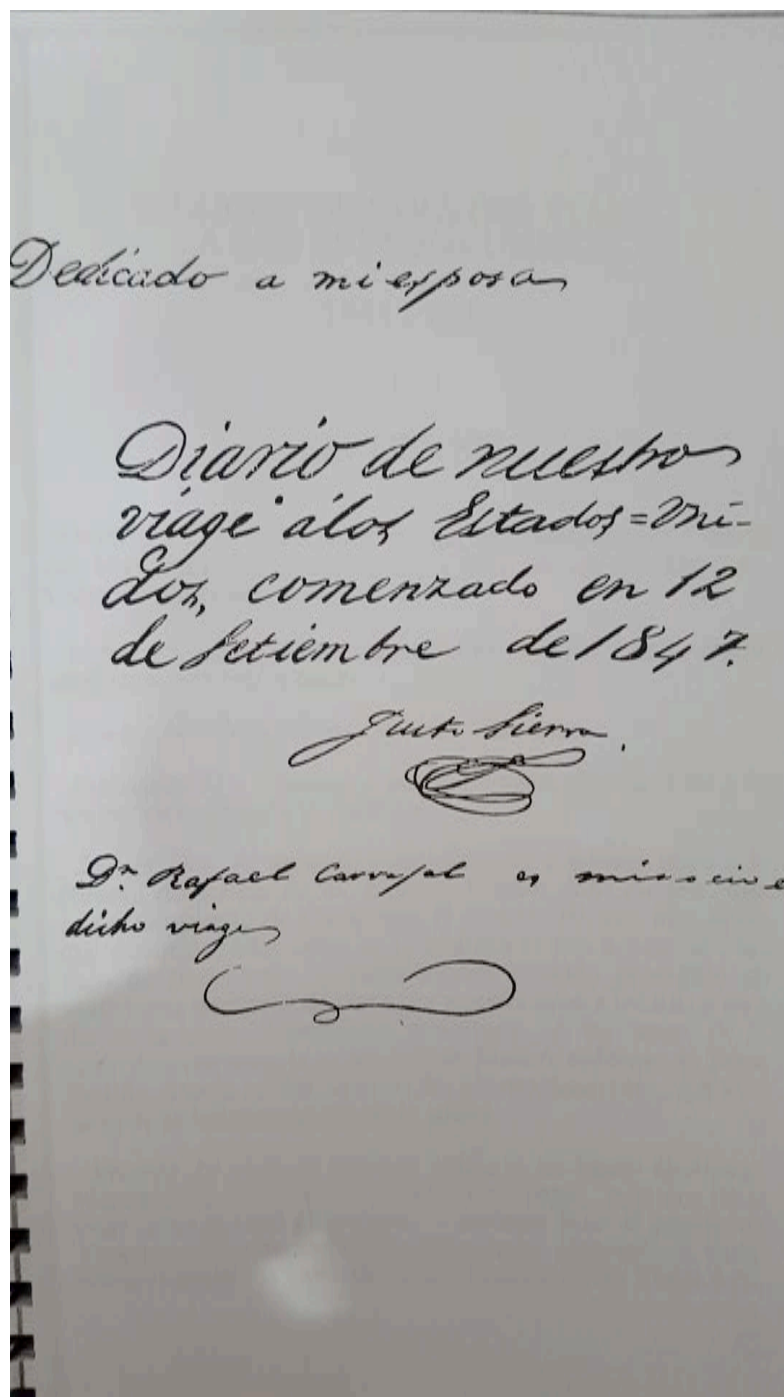 Dedicado a mi esposa
Diario de nuestro
viage á los Estados=Uni-
dos, comenzado en 12
de Setiembre de 1847.
Justo Sierra.
Dn. Rafael Carvajal es mi socio e
dicho viage